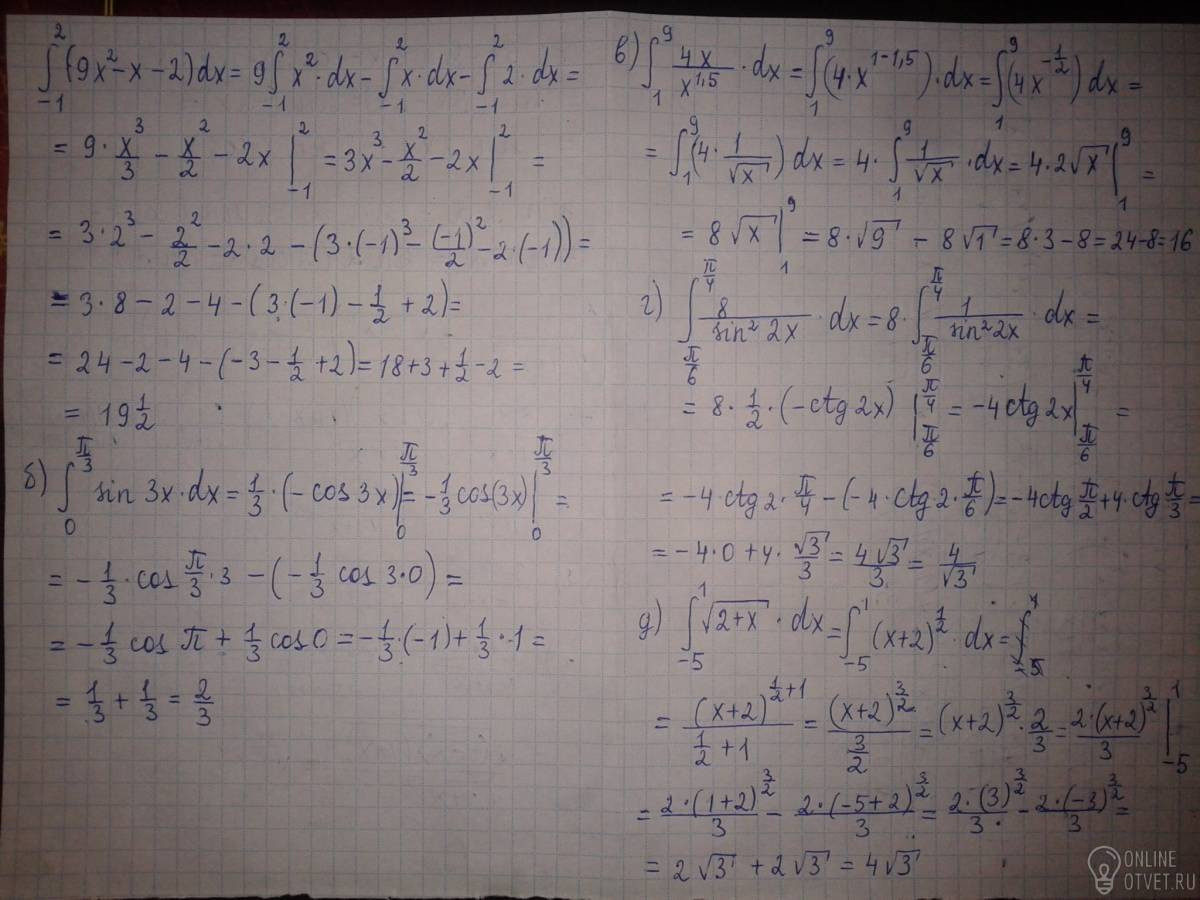 ∫₋₁² (9x² − x − 2) dx = 9 ∫₋₁² x² · dx − ∫₋₁² x · dx − ∫₋₁² 2 · dx =
= 9 · x³/3 − x²/2 − 2x |₋₁² = 3x³ − x²/2 − 2x |₋₁² =
= 3 · 2³ − 2²/2 − 2 · 2 − (3 · (−1)³ − (−1)²/2 − 2 · (−1)) =
= 3 · 8 − 2 − 4 − (3 · (−1) − 1/2 + 2) =
= 24 − 2 − 4 − (−3 − 1/2 + 2) = 18 + 3 + 1/2 − 2 =
= 19 1/2
б) ∫₀^(π/3) sin 3x · dx = 1/3 · (− cos 3x) |₀^(π/3) = − 1/3 cos(3x) |₀^(π/3) =
= − 1/3 · cos π/3 · 3 − (− 1/3 cos 3 · 0) =
= − 1/3 cos π + 1/3 cos 0 = − 1/3 · (−1) + 1/3 · 1 =
= 1/3 + 1/3 = 2/3
в) ∫₁⁹ 4x/x^(1,5) · dx = ∫₁⁹ (4 · x^(1−1,5)) · dx = ∫₁⁹ (4x^(−1/2)) dx =
= ∫₁⁹ (4 · 1/√x) dx = 4 · ∫₁⁹ 1/√x · dx = 4 · 2√x |₁⁹ =
= 8√x |₁⁹ = 8 · √9 − 8√1 = 8 · 3 − 8 = 24 − 8 = 16
г) ∫_(π/6)^(π/4) 8/sin² 2x · dx = 8 · ∫_(π/6)^(π/4) 1/sin² 2x · dx =
= 8 · 1/2 · (− ctg 2x) |_(π/6)^(π/4) = −4 ctg 2x |_(π/6)^(π/4) =
= −4 · ctg 2 · π/4 − (−4 · ctg 2 · π/6) = −4 ctg π/2 + 4 · ctg π/3 =
= −4 · 0 + 4 · √3/3 = 4√3/3 = 4/√3
д) ∫₋₅¹ √(2+x) · dx = ∫₋₅¹ (x+2)^(1/2) · dx =
= (x+2)^(1/2+1)/(1/2+1) = (x+2)^(3/2)/(3/2) = (x+2)^(3/2) · 2/3 = 2·(x+2)^(3/2)/3 |₋₅¹
= 2·(1+2)^(3/2)/3 − 2·(−5+2)^(3/2)/3 = 2·(3)^(3/2)/3 − 2·(−3)^(3/2)/3 =
= 2√3 + 2√3 = 4√3
ONLINE
OTVET.RU